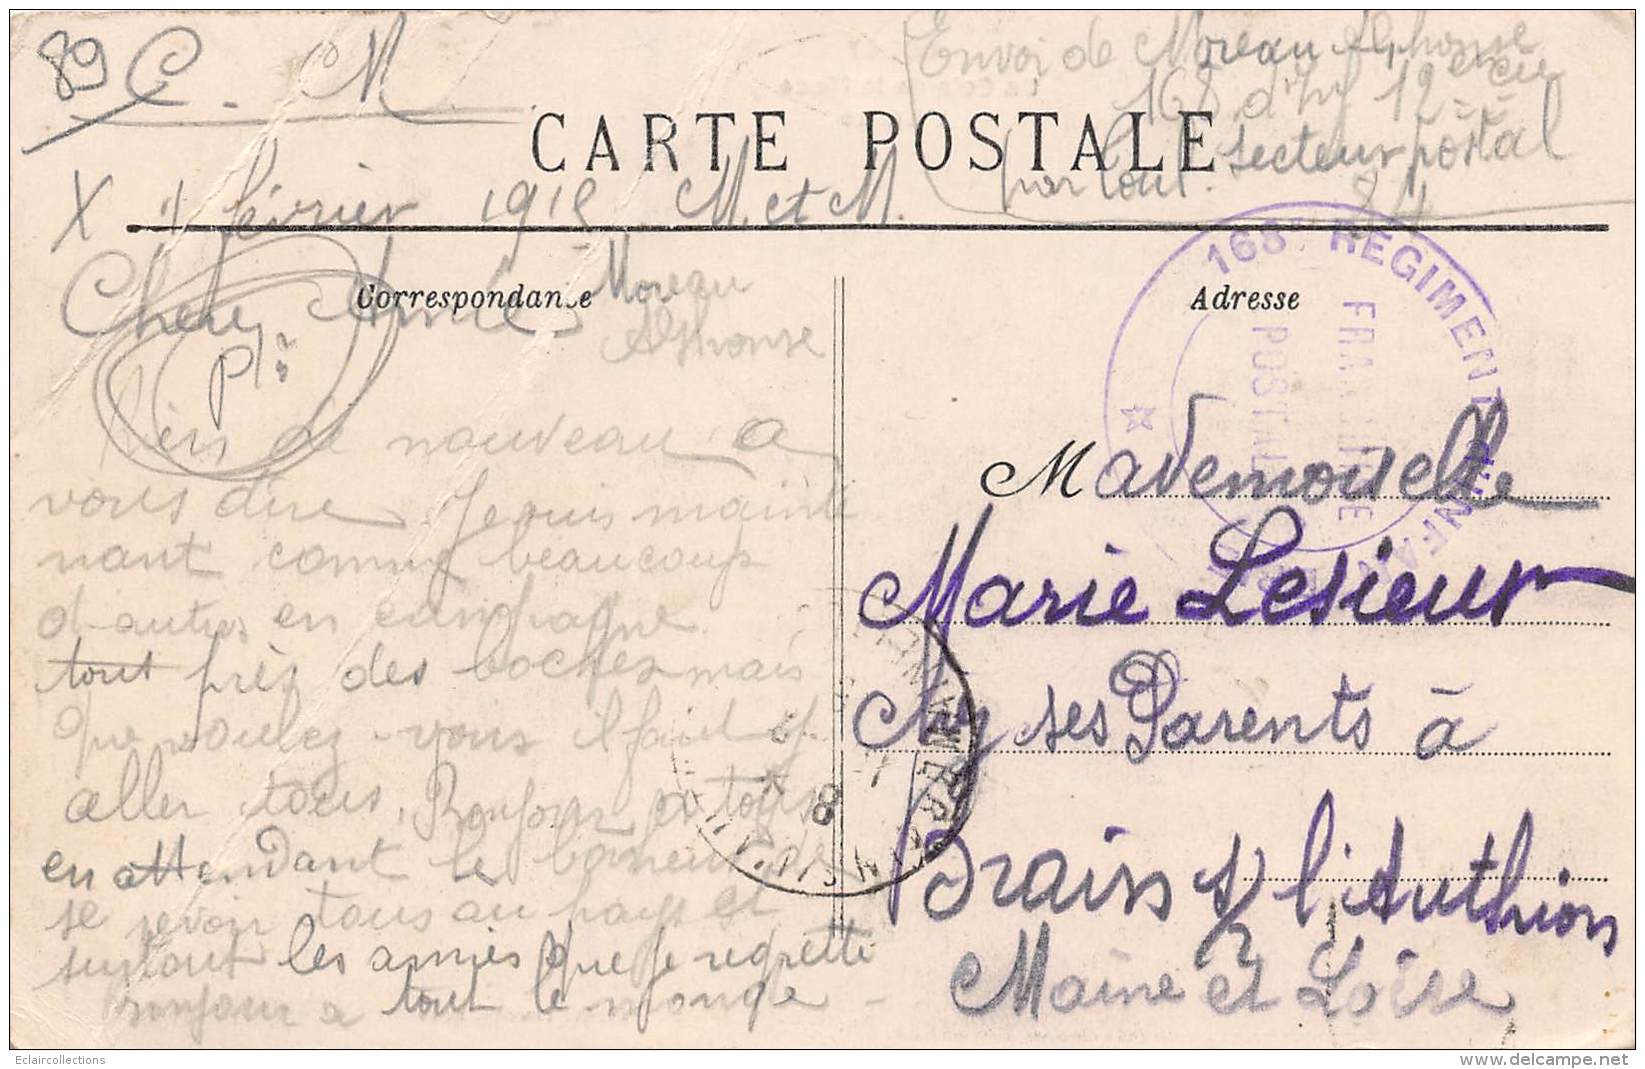 89 C. M.
Envoi de Moreau Alphonse
168 d'Inf 12ème Cie
CARTE POSTALE
par Toul. secteur postal
84
X 4 février 1915 M. et M.
168e REGIMENT D'INFANTERIE
FRANCHISE
POSTALE
Correspondance
Adresse
Chers Amies Moreau
Alphonse
Pr
Viens de nouveau a
vous dire Je suis mainte
nant comme beaucoup
d'autres en campagne
tout près des boches mais
que voulez-vous il faut y
aller tous, Bonjour a tous
en attendant le bonheur de
se revoir tous au pays et
surtout les amies que je regrette
bonjour a tout le monde
Mademoiselle
Marie Lesieur
Chez ses Parents à
Brain s/ l'Authion
Maine et Loire
Eclaircollections
www.delcampe.net